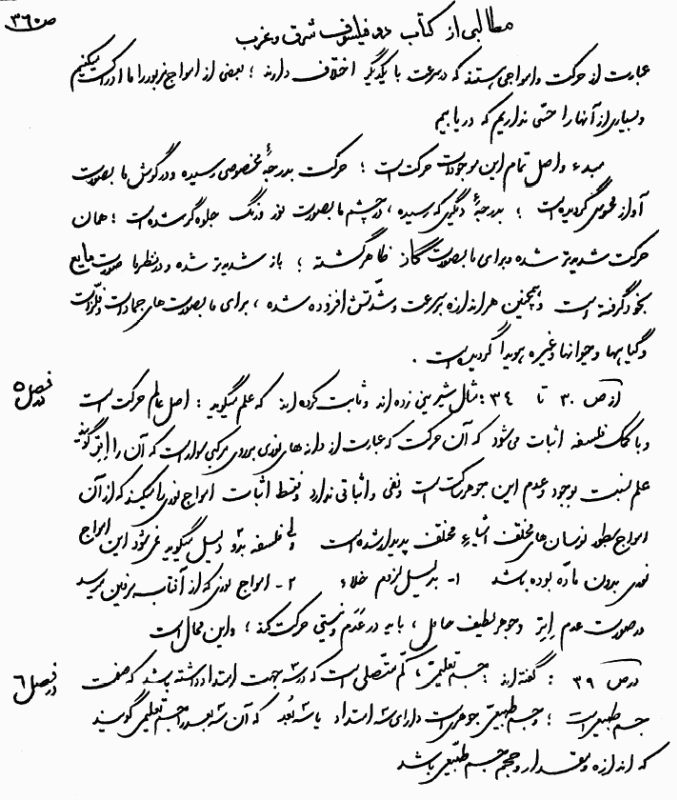 ص ۳۶۰
مطالبی از کتاب دو فیلسوف شرق و غرب
عبارت از حرکت و امواجی هستند که در سرعت با یکدیگر اختلاف دارند ؛ بعضی از امواج مزبور را ما ادراک میکنیم
و بسیاری از آنها را حسّی نداریم که دریابیم
مبدء و اصل تمام این موجودات حرکت است ؛ حرکت بدرجهٔ مخصوصی رسیده و در گوش ما بصورت
آواز محسوس گردیده است ؛ بدرجهٔ دیگری که رسیده ، در چشم ما بصورت نور و رنگ جلوه گر شده است ؛ همان
حرکت شدیدتر شده و برای ما بصورت گاز ظاهر گشته ؛ باز شدیدتر شده و در نظر ما صورت مایع
بخود گرفته است و همچنین هر اندازه بسرعت و شدّتش افزوده شده ، برای ما بصورت های جمادات و فلزّات
و گیاهها و حیوانها و غیره هویدا گردیده است .
از ص ۳۰ تا ۳۴ : مثال شیرینی زده اند و ثابت کرده اند که علم میگوید : اصل عالم حرکت است
در فصل ۵
و با کمک فلسفه اثبات می شود که آن حرکت که عبارت از دانه های نوری بر روی مرکبی سوار است که آن را اِتِر گویند
علم نسبت بوجود و عدم این جوهر ساکت است و نفی و اثباتی ندارد و فقط اثبات امواج نوری را میکند که از آن
امواج بطور نوسان های مختلف اشیاءِ مختلف پدیدار شده است ولی فلسفه بدو دلیل میگوید نمی شود این امواج
نوری بدون مادّه بوده باشد ۱- بدلیل لزوم خلاء ۲- امواج نوری که از آفتاب بزمین میرسد
در صورت عدم اِتِر و جوهر لطیف حامل ، باید در عَدَم و نیستی حرکت کند ؛ و این محال است
در ص ۳۹ : گفته اند : جسم تعلیمی ، کمّ متّصلی است که در سه جهت امتداد داشته باشد که صفت
در فصل ۶
جسم طبیعی است ؛ و جسم طبیعی جوهری است دارای سه امتداد یا سه بُعد که آن سه بعد را جسم تعلیمی گویند
که اندازه و مقدار و حجم جسم طبیعی باشد